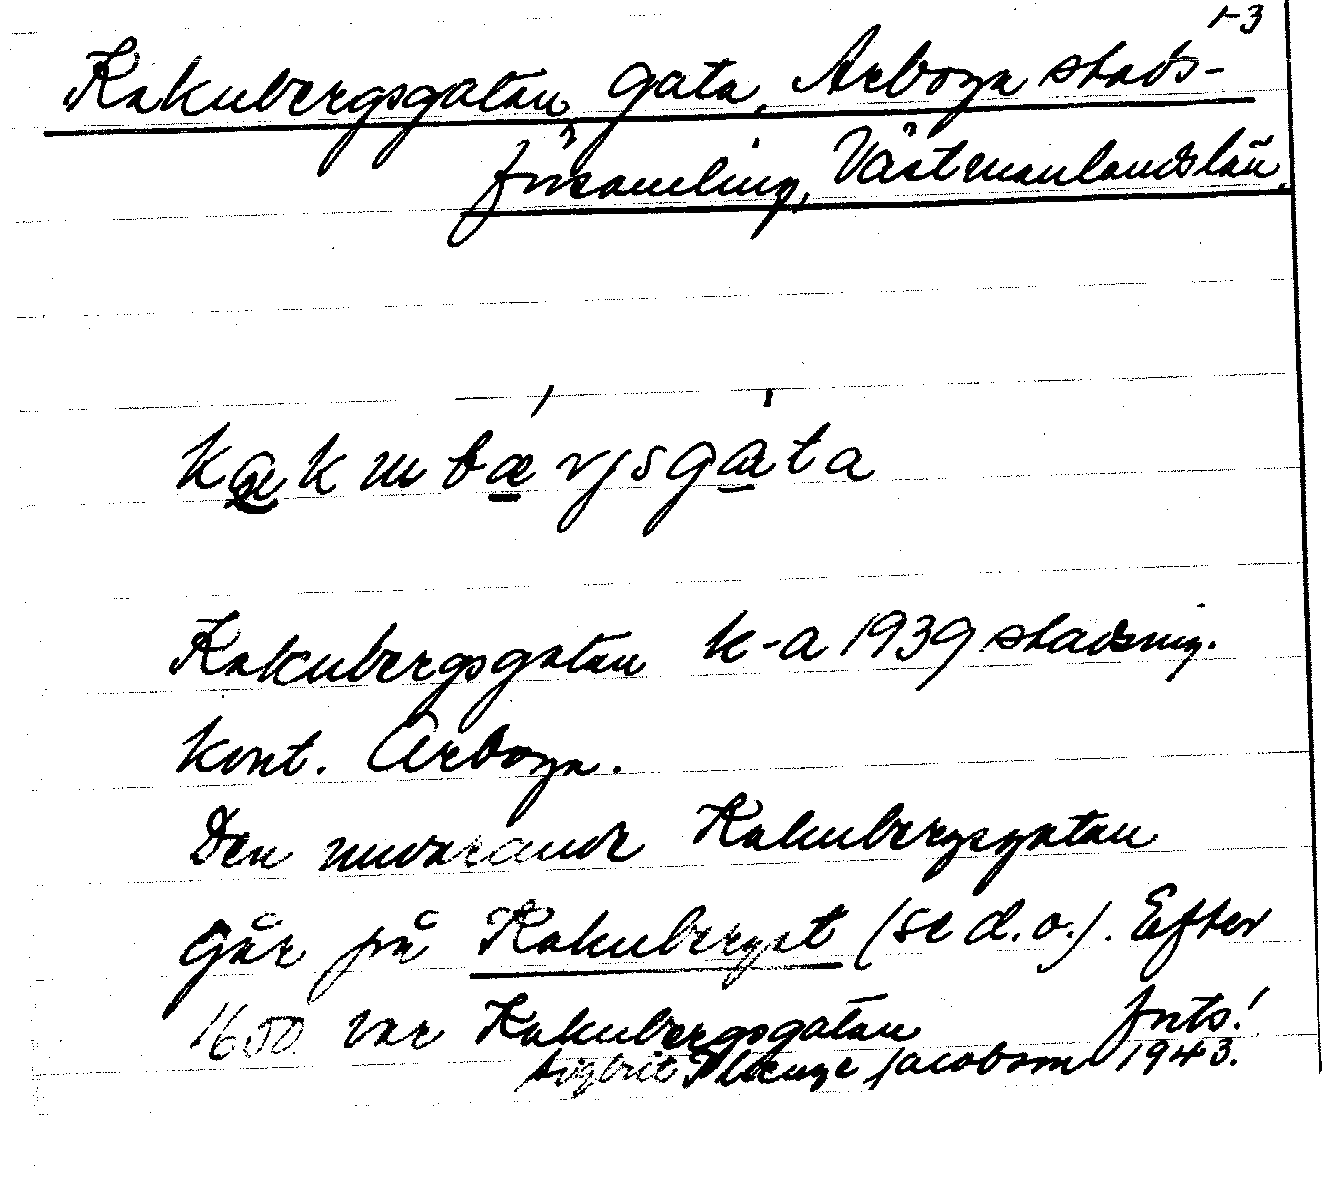 1-3
Kakubergsgatan, gata, Arboga stads-
församling, Västmanlands län.
kakubærjsgata
Kakubergsgatan k-a 1939 stadsing.
kont. Arboga.
Den nuvarande Kakubergsgatan
går på Kakuberget (se d.o.). Efter
1650 var Kakubergsgatan forts!
Sigbrit Plænge Jacobson 1943.